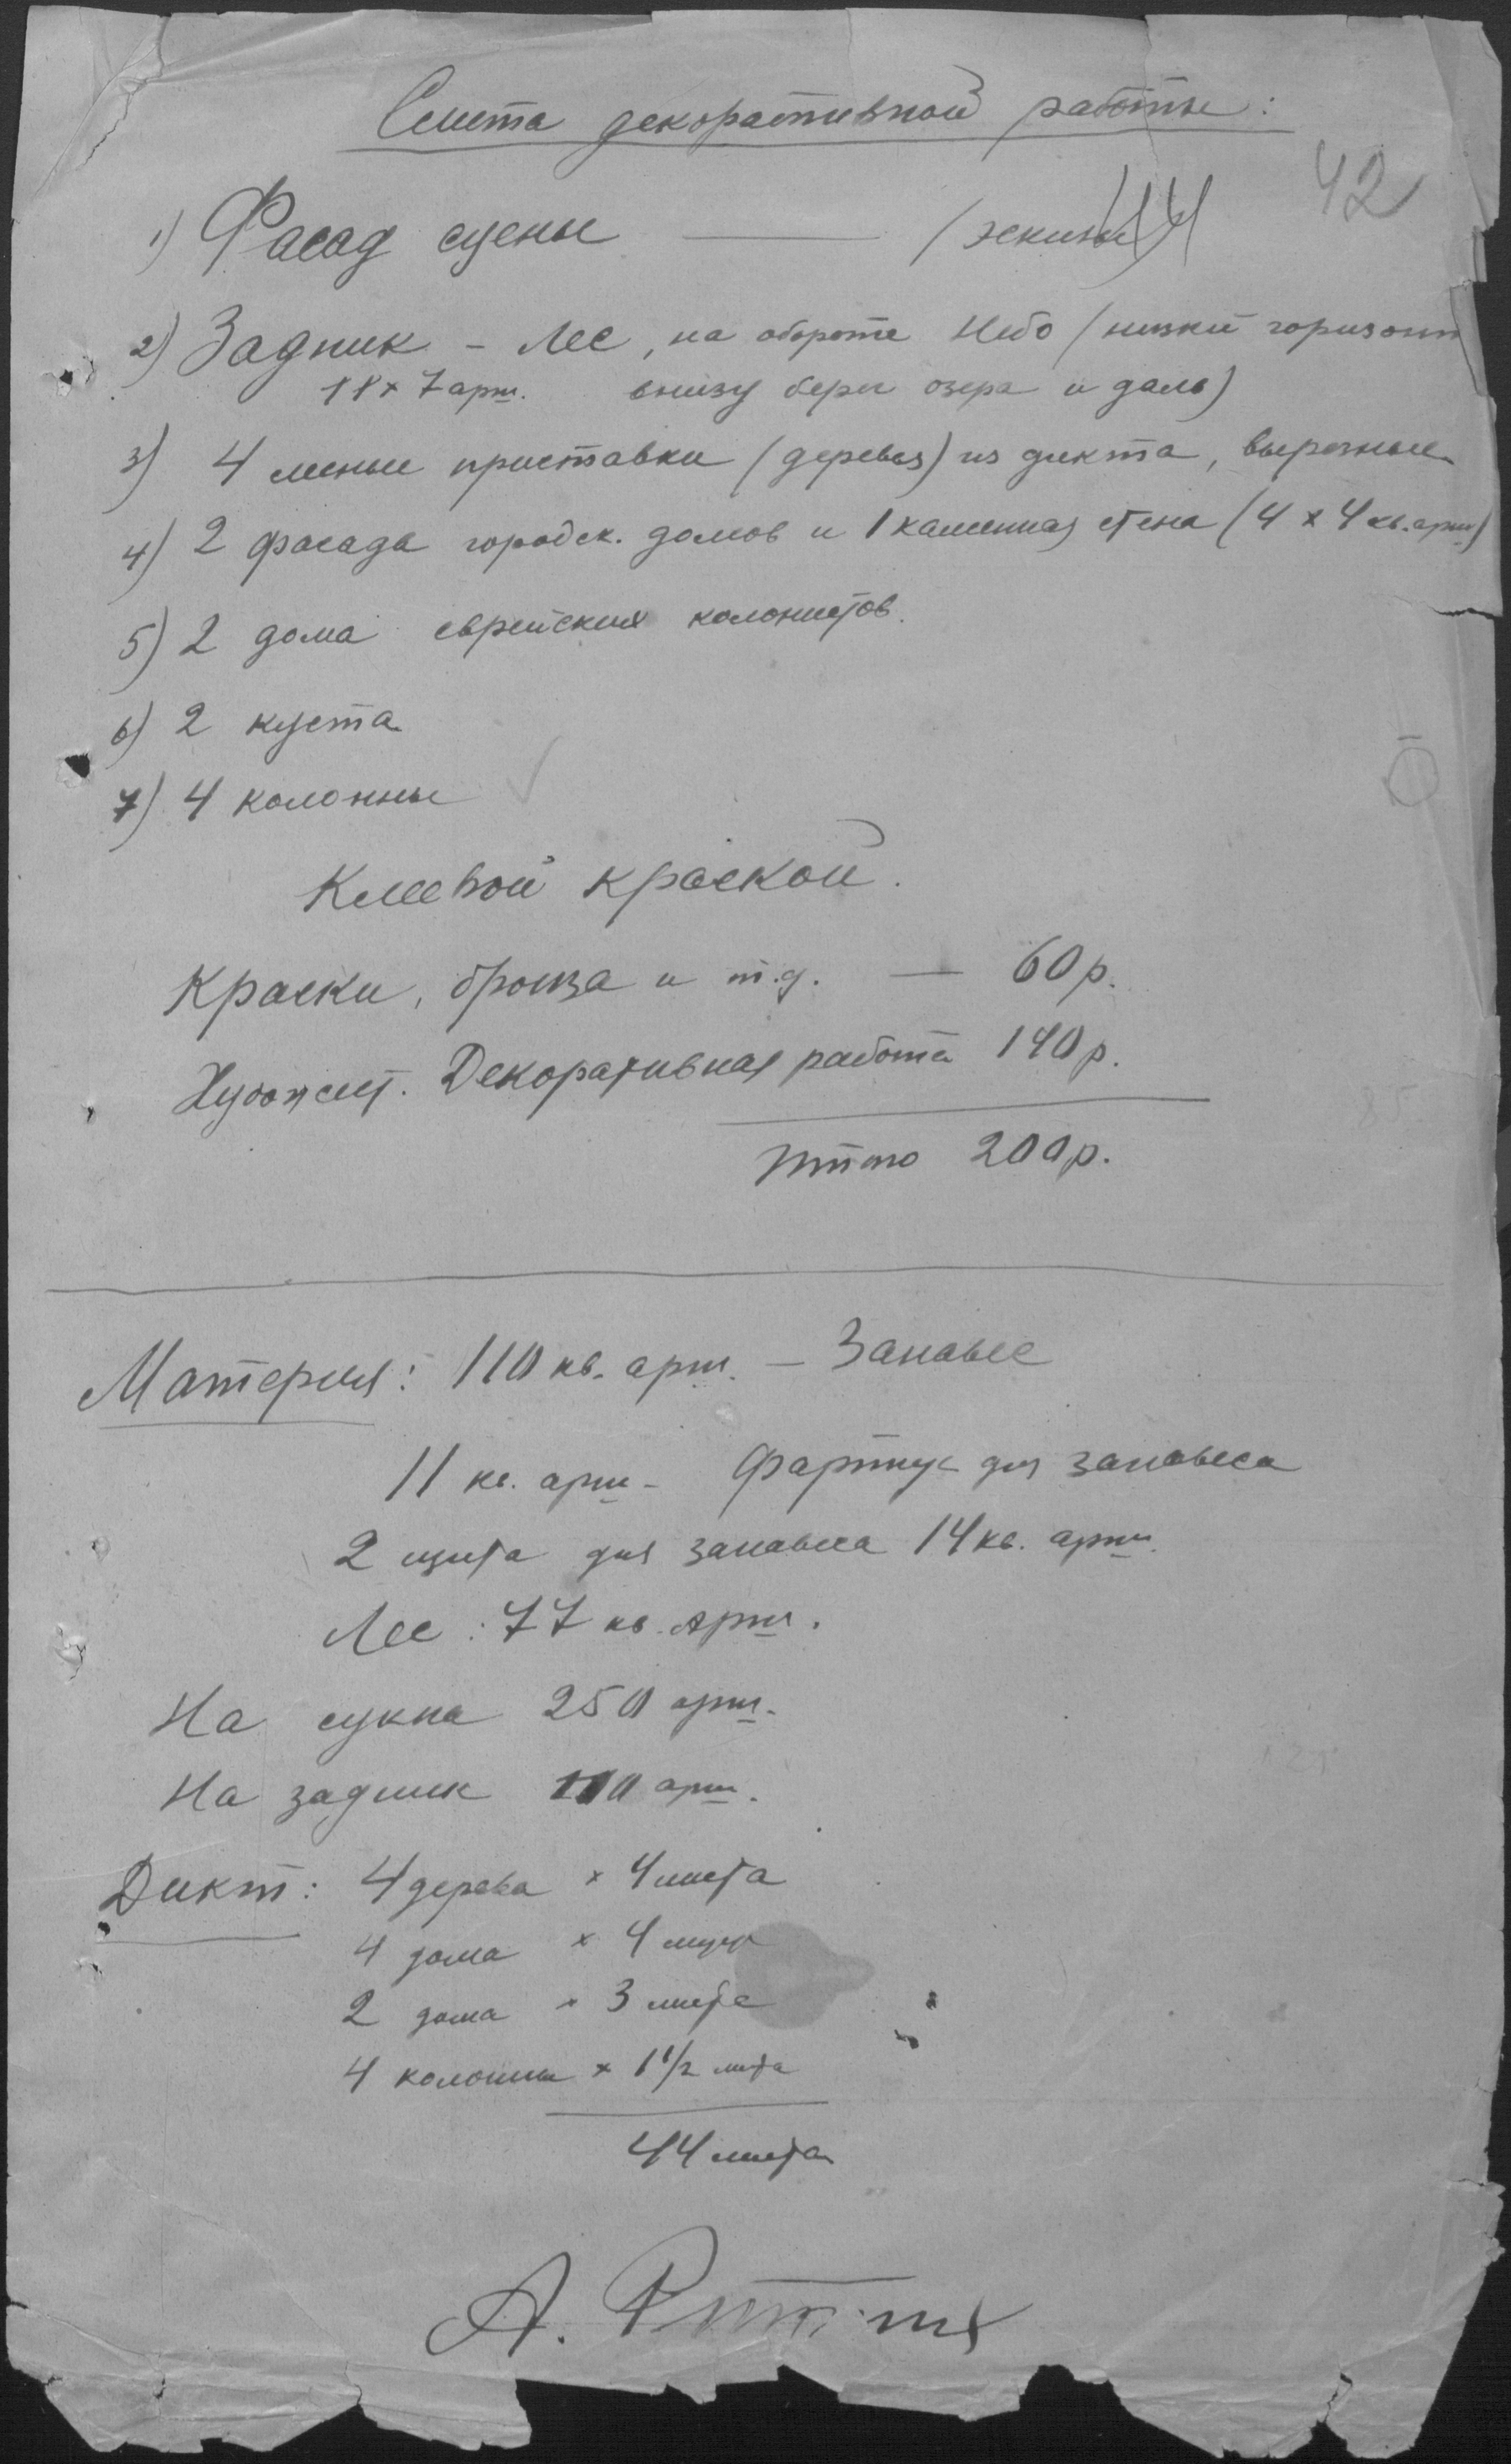 Смета декоративной работы:
42
1) Фасад сцены — (эскизы)
2) Задник – Лес, на обороте Небо (низкий горизонт
11 × 7 арш. внизу берег озера и даль)
3) 4 лесные приставки (деревья) из дикта, вырезные
4) 2 фасада городск. домов и 1 каменная стена (4 × 4 кв. арш)
5) 2 дома еврейских колонистов.
6) 2 куста
7) 4 колонны
Клеевой краской.
Краски, бронза и т.д. — 60 р.
Художест. Декоративная работа 140 р.
Итого 200 р.
Материя: 110 кв. арш. – Занавес
11 кв. арш – Фартук для занавеса
2 щита для занавеса 14 кв. арш.
Лес: 77 кв. арш.
На сукна 250 арш.
На задник 110 арш.
Дикт: 4 дерева × 4 листа
4 дома × 4 листа
2 дома × 3 листа
4 колонны × 1 1/2 листа
44 листа
А.